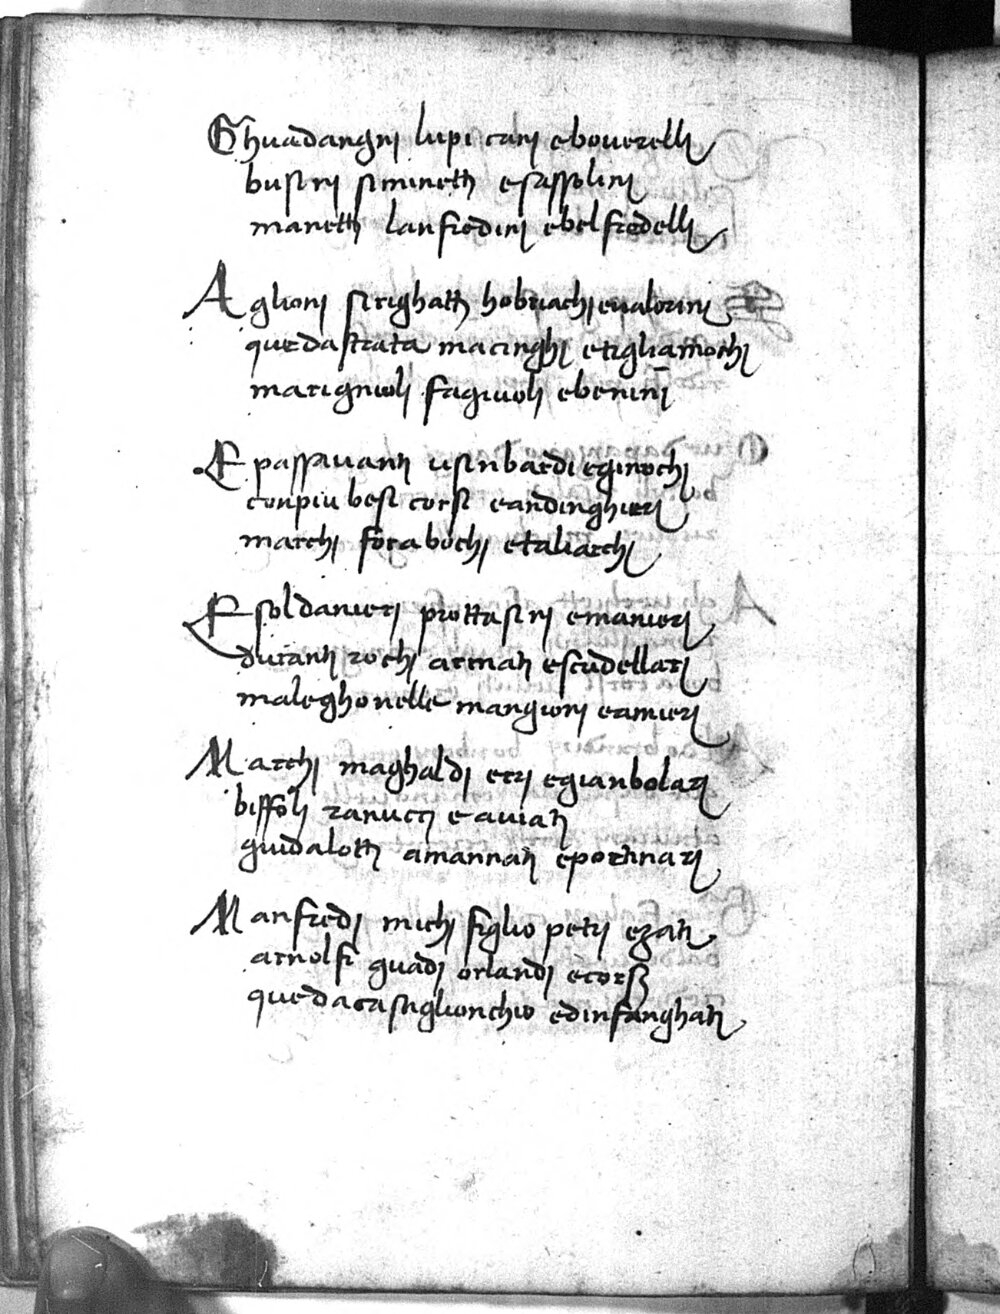 Ghuadangni lupicani eboverelli
busini siminetti esassolini
manetti lanfredini ebelfredelli
Aglioni sirighatti hobriachi evalorini
quedastrata macinghi etigliamochi
matignioli fagiuoli ebenini
E passavanti usinbardi eginochi
conpiu besi corsi eandinghieri
marchi foraboschi etaliarchi
E soldanieri prottasini emanieri
duranti rochi armati escudellari
maleghonelle mangioni eamieri
Marchi maghaldi erri egianbolari
biffoli ranucci eaviati
guidalotti amannati eportinari
Manfredi michi figlio petri ezati
arnolfi guadi orlandi ecorsi
quedacastiglionchio edinfanghati